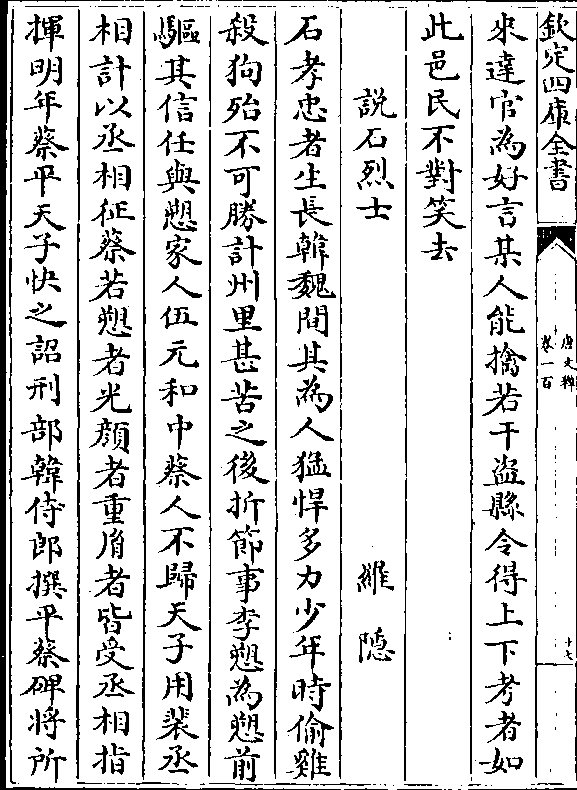 欽定四庫全書
唐文粹
卷一百
十七
來達官為好言某人能擒若干盗縣令得上下考者如
此邑民不對笑去
說石烈士
羅隐
石孝忠者生長韓魏間其為人猛悍多力少年時偷雞
殺狗殆不可勝計州里甚苦之後折節事李愬為愬前
驅其信任與愬家人伍元和中蔡人不歸天子用裴丞
相計以丞相征蔡若愬者光顔者重𦙍者皆受丞相指
揮明年蔡平天子快之詔刑部韓侍郎撰平蔡碑将所